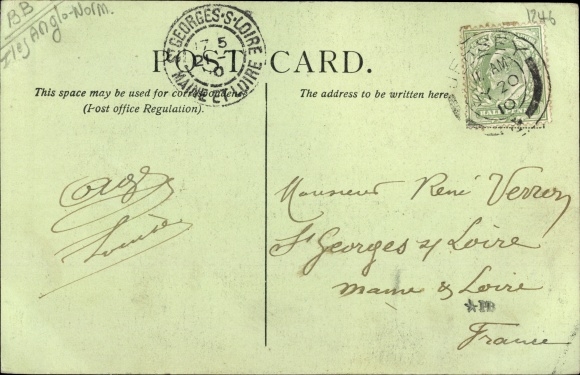 BB
Iles Anglo-Norm.
1246
POST CARD.
ST GEORGES-S-LOIRE
17 5
10
MAINE ET LOIRE
JERSEY
AM
20
10
HALF
This space may be used for correspondence
(Post office Regulation).
The address to be written here.
Louise
Monsieur René Verron
St Georges s/ Loire
Maine & Loire
France